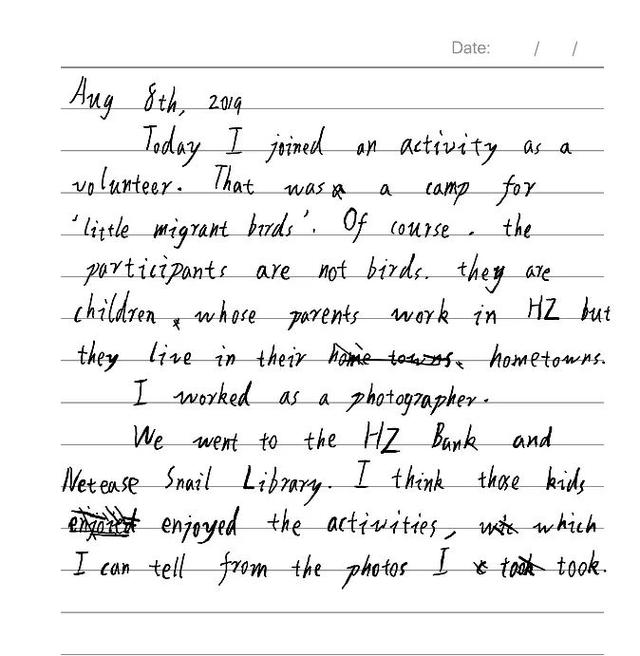 Date: / /
Aug 8th, 2019
Today I joined an activity as a
volunteer. That was a camp for
'little migrant birds'. Of course. the
participants are not birds. they are
children, whose parents work in HZ but
they live in their home towns. hometowns.
I worked as a photographer.
We went to the HZ Bank and
Netease Snail Library. I think those kids
enjoyed the activities, which
I can tell from the photos I took.